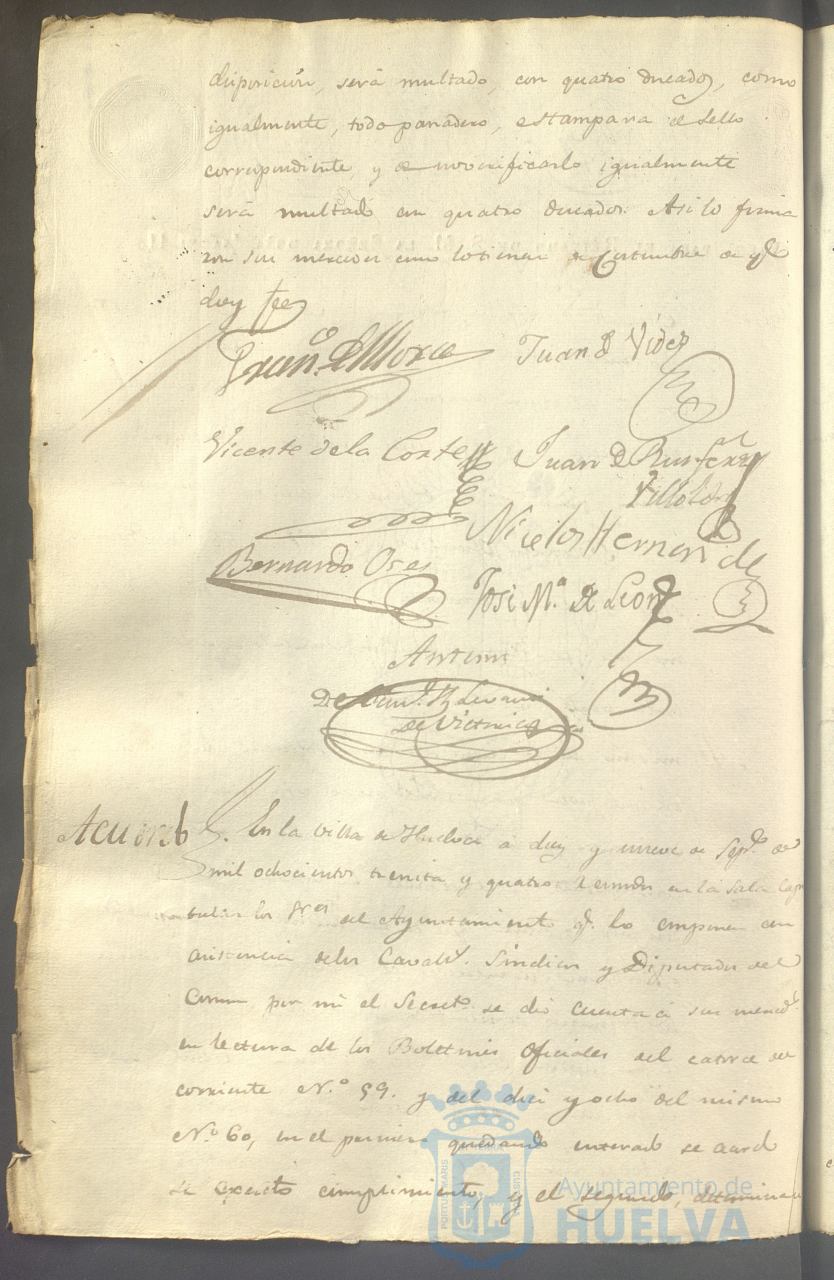 disposicion, será multado, con quatro ducados, como
igualmente, todo panadero, estampara el sello
correspondiente, y de no verificarlo igualmente
será multado en quatro ducados. Asi lo firma
ron sus mercedes como lo tienen de costumbre de qe
doy fee
Franco. de Mora Juan de Vides
Vicente de la Corte Juan de
Nicolas Hernandes
Bernardo
José Ma. de Leon
Ante mi
de Victoria
Acuerdo En la villa de Huelva a diez y nueve de Sepe. de
mil ochocientos treinta y quatro: reunidos en la Sala Capi
tular los Sres del Ayuntamiento qe. lo componen con
asistencia de los Cavallos. Sindicos y Diputados del
Comun por mi el Secreto. se dió cuenta a sus merceds.
en lectura de los Boletines oficiales del catorce del
corriente No. 59. y del diez y ocho del mismo
No. 60, en el primero quedando enterado se acordó
su exacto cumplimiento, y el segundo, determinan
Ayuntamiento de
HUELVA